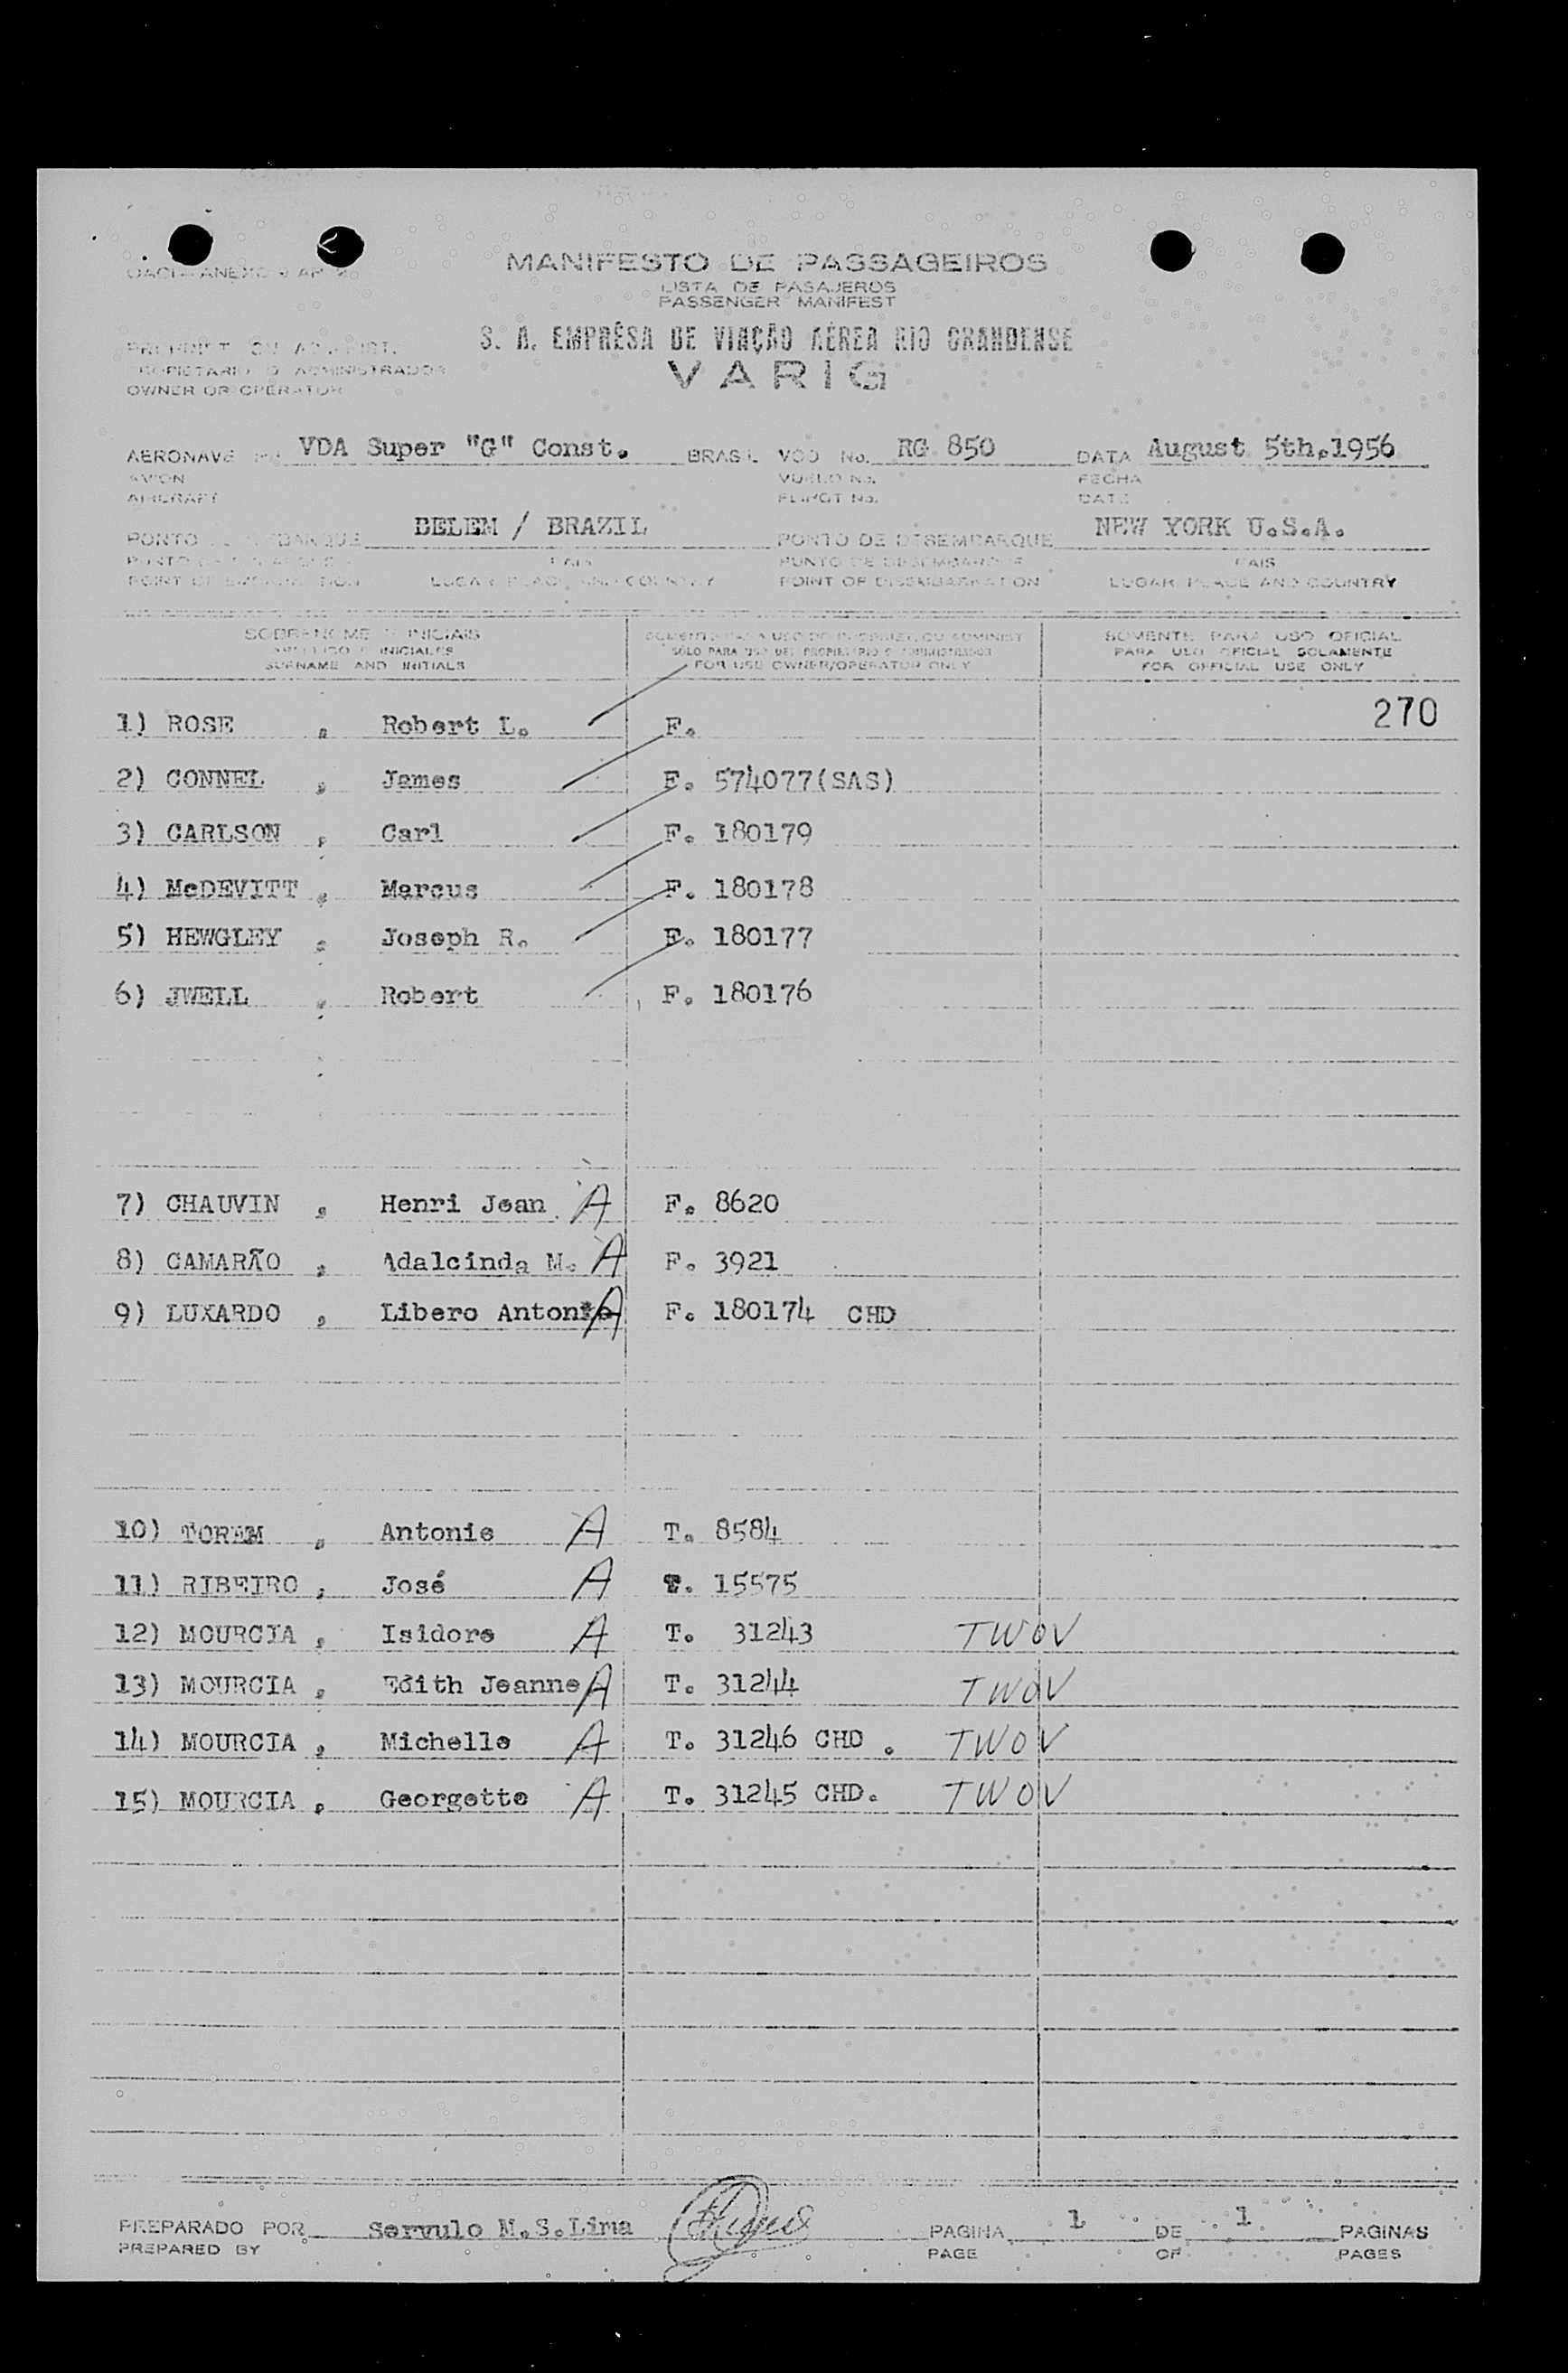 OACI - ANEXO 9 AP. 2
MANIFESTO DE PASSAGEIROS
LISTA DE PASAJEROS
PASSENGER MANIFEST
S. A. EMPRÊSA DE VIAÇÃO AÉREA RIO GRANDENSE
PROPIETARIO O ADMINISTRADOR
VARIG
OWNER OR OPERATOR
AERONAVE VDA Super "G" Const. BRASIL VÔO No. RG 850 DATA August 5th,1956
AVION VUELO No. FECHA
AIRCRAFT FLIHGT No. DATE
PONTO BELEM / BRAZIL PONTO DE DESEMBARQUE NEW YORK U.S.A.
PUNTO PAIS PUNTO DE DESEMBARQUE PAIS
POINT OF EMBARKATION LUGAR, PLACE AND COUNTRY POINT OF DISEMBARKATION LUGAR, PLACE AND COUNTRY
SOBRENOME E INICIAIS SOMENTE PARA USO SOMENTE PARA USO OFICIAL
APELLIDO E INICIALES SOLO PARA USO DEL PROPIETARIO O ADMINISTRADOR PARA USO OFICIAL SOLAMENTE
SURNAME AND INITIALS FOR USE OWNER/OPERATOR ONLY FOR OFFICIAL USE ONLY
1) ROSE , Robert L. F. 270
2) CONNEL , James F. 574077(SAS)
3) CARLSON , Carl F. 180179
4) McDEVITT , Marcus F. 180178
5) HEWGLEY , Joseph R. F. 180177
6) JWELL , Robert F. 180176
7) CHAUVIN , Henri Jean A F. 8620
8) CAMARÃO , Adalcinda M. A F. 3921
9) LUXARDO , Libero Antonio A F. 180174 CHD
10) TOREM , Antonie A T. 8584
11) RIBEIRO , José A T. 15575
12) MOURCIA , Isidore A T. 31243 TWOV
13) MOURCIA , Edith Jeanne A T. 31244 TWOV
14) MOURCIA , Michelle A T. 31246 CHD . TWOV
15) MOURCIA , Georgette A T. 31245 CHD. TWOV
PREPARADO POR Servulo M.S.Lima PAGINA 1 DE 1 PAGINAS
PREPARED BY PAGE OF PAGES